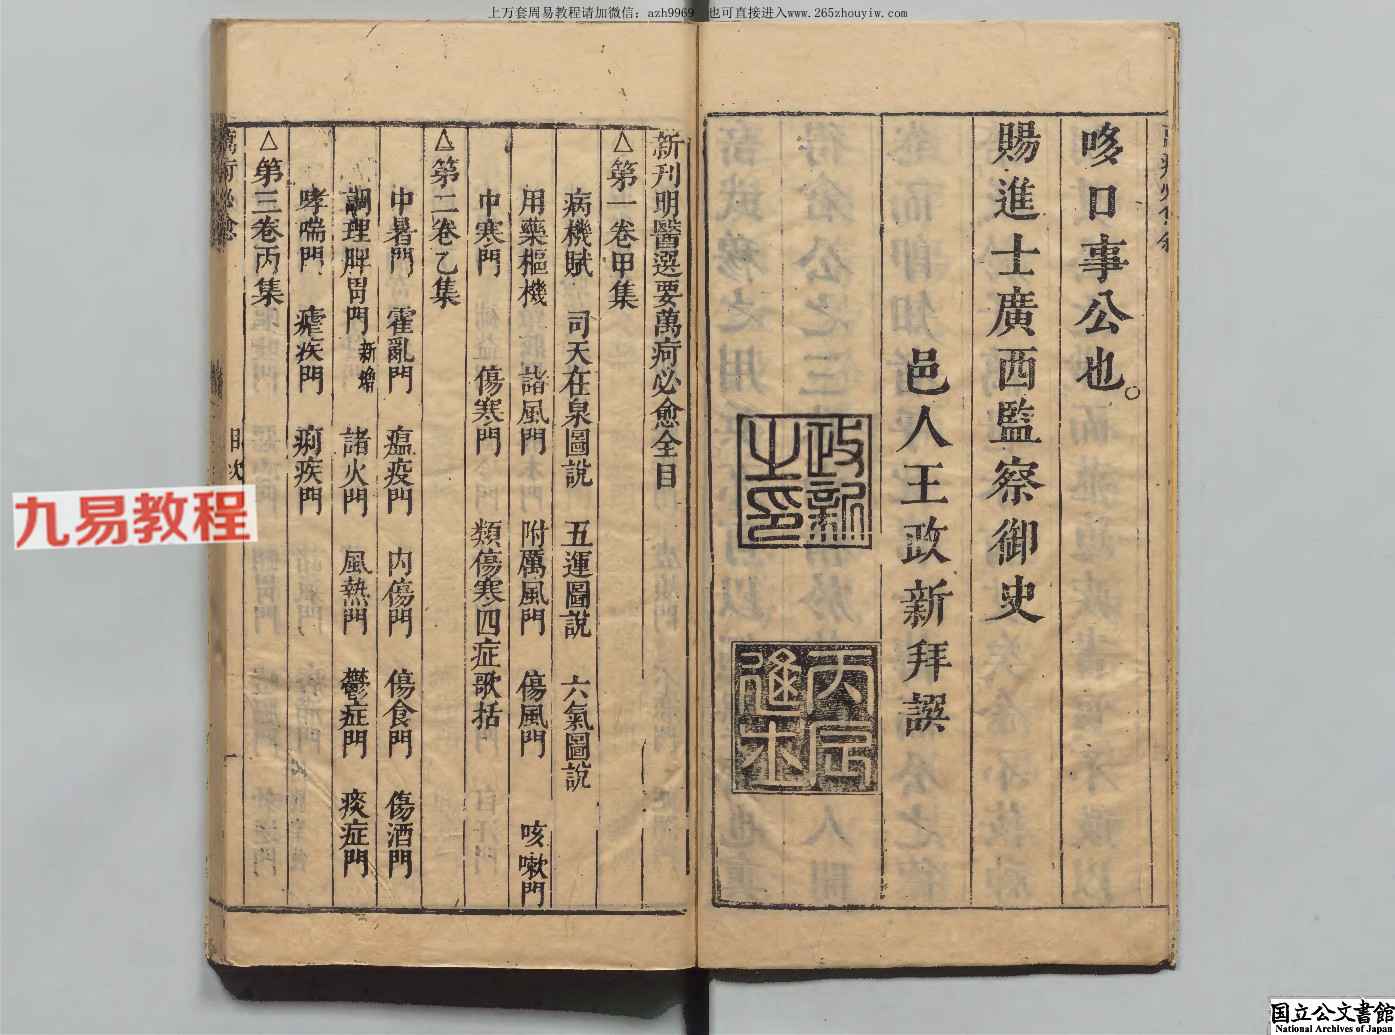 上万套周易教程请加微信：azh9969，也可直接进入www.265zhouyiw.com
哆口事公也。
賜進士廣西監察御史
邑人王政新拜譔
政新
之印
丙辰
進士
新刊明醫選要萬疴必愈全目
△第一卷甲集
病機賦 司天在泉圖說 五運圖說 六氣圖說
用藥樞機 諸風門 附厲風門 傷風門 咳嗽門
中寒門 傷寒門 類傷寒四症歌括
△第二卷乙集
中暑門 霍亂門 瘟疫門 內傷門 傷食門 傷酒門
調理脾胃門新增 諸火門 風熱門 鬱症門 痰症門
哮喘門 瘧疾門 痢疾門
△第三卷丙集
萬疴必愈 目次
九易教程
国立公文書館
National Archives of Japan